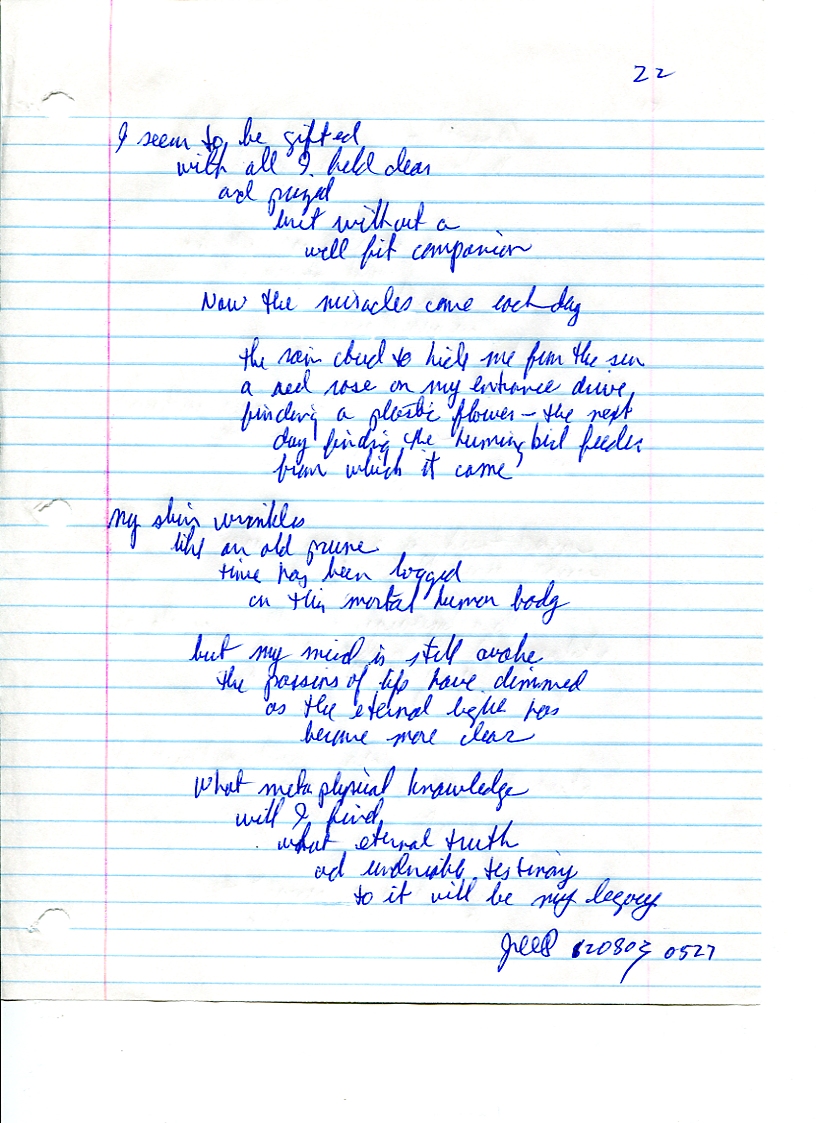 22
I seem to be gifted
with all I held dear
and prized
but without a
well fit companion
Now the miracles come each day
the rain cloud to hide me from the sun
a red rose on my entrance drive,
finding a plastic flower – the next
day finding the huming bird feeder
from which it came
my skin wrinkles
like an old prune
time has been logged
on this mortal human body
but my mind is still awake
the passions of life have dimmed
as the eternal light has
become more clear
What metaphysical knowledge
will I find,
what eternal truth
and undeniable testimony
to it will be my legacy
120803 0527